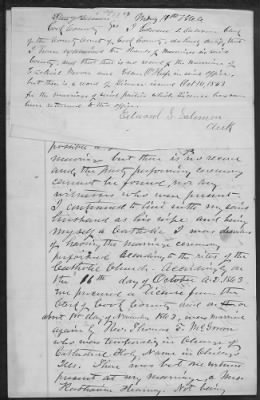 State of Illinois May 18th 1866
Cook County ss I Edward S. Salomon Clerk
of the County Court of Cook County, do hereby certify that
I have examined the Records of Marriages in said
County, and that there is no record of the Marriage of
Ezekiel Moore and Ellen in said office,
but there is a record of License issued Oct 16, 1863
for the marriage of said parties which License has never
been returned to this office.
Edward S. Salomon
Clerk
possible as
marriage but there is no record
and the party performing ceremony
cannot be found nor any
witnesses who were present.
I continued to live with my said
husband as his wife and being
myself a Catholic I was desirous
of having the marriage ceremony
performed according to the rites of the
Catholic Church. Accordingly on
the 16th day of October A.D. 1863
we procured a license from the
Clerk of Cook County and on or
about 1st day of November 1863, was married
again by Rev. Thomas F.
who was temporarily in charge of
Cathedral Holy Name in Chicago
Ills. There was but one witness
present at my marriage, a Mrs
Katharine Not being